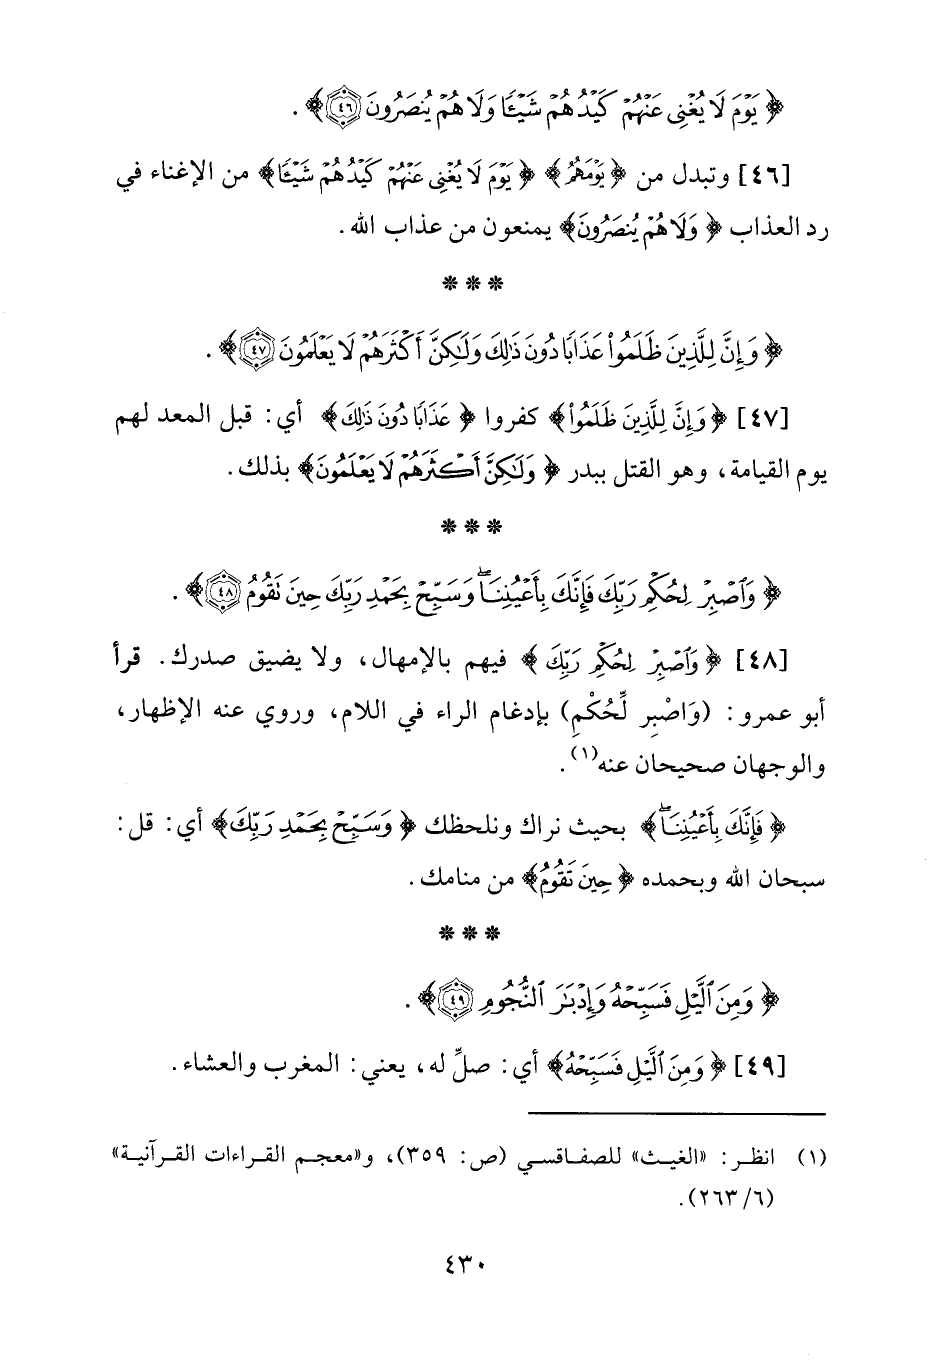 ﴿ يَوْمَ لَا يُغْنِي عَنْهُمْ كَيْدُهُمْ شَيْئًا وَلَا هُمْ يُنصَرُونَ ٤٦ ﴾ .
[٤٦] وتبدل من ﴿ يَوْمَهُمُ ﴾ ﴿ يَوْمَ لَا يُغْنِي عَنْهُمْ كَيْدُهُمْ شَيْئًا ﴾ من الإغناء في
رد العذاب ﴿ وَلَا هُمْ يُنصَرُونَ ﴾ يمنعون من عذاب الله.
* * *
﴿ وَإِنَّ لِلَّذِينَ ظَلَمُوا۟ عَذَابًا دُونَ ذَٰلِكَ وَلَٰكِنَّ أَكْثَرَهُمْ لَا يَعْلَمُونَ ٤٧ ﴾ .
[٤٧] ﴿ وَإِنَّ لِلَّذِينَ ظَلَمُوا۟ ﴾ كفروا ﴿ عَذَابًا دُونَ ذَٰلِكَ ﴾ أي: قبل المعد لهم
يوم القيامة، وهو القتل ببدر ﴿ وَلَٰكِنَّ أَكْثَرَهُمْ لَا يَعْلَمُونَ ﴾ بذلك.
* * *
﴿ وَٱصْبِرْ لِحُكْمِ رَبِّكَ فَإِنَّكَ بِأَعْيُنِنَا ۖ وَسَبِّحْ بِحَمْدِ رَبِّكَ حِينَ تَقُومُ ٤٨ ﴾ .
[٤٨] ﴿ وَٱصْبِرْ لِحُكْمِ رَبِّكَ ﴾ فيهم بالإمهال، ولا يضيق صدرك. قرأ
أبو عمرو: (وَاصْبِر لِّحُكْمِ) بإدغام الراء في اللام، وروي عنه الإظهار،
والوجهان صحيحان عنه(١).
﴿ فَإِنَّكَ بِأَعْيُنِنَا ۖ ﴾ بحيث نراك ونلحظك ﴿ وَسَبِّحْ بِحَمْدِ رَبِّكَ ﴾ أي: قل:
سبحان الله وبحمده ﴿ حِينَ تَقُومُ ﴾ من منامك.
* * *
﴿ وَمِنَ ٱلَّيْلِ فَسَبِّحْهُ وَإِدْبَٰرَ ٱلنُّجُومِ ٤٩ ﴾ .
[٤٩] ﴿ وَمِنَ ٱلَّيْلِ فَسَبِّحْهُ ﴾ أي: صلِّ له، يعني: المغرب والعشاء.
(١) انظر: «الغيث» للصفاقسي (ص: ٣٥٩)، و«معجم القراءات القرآنية»
(٦/ ٢٦٣).
٤٣٠